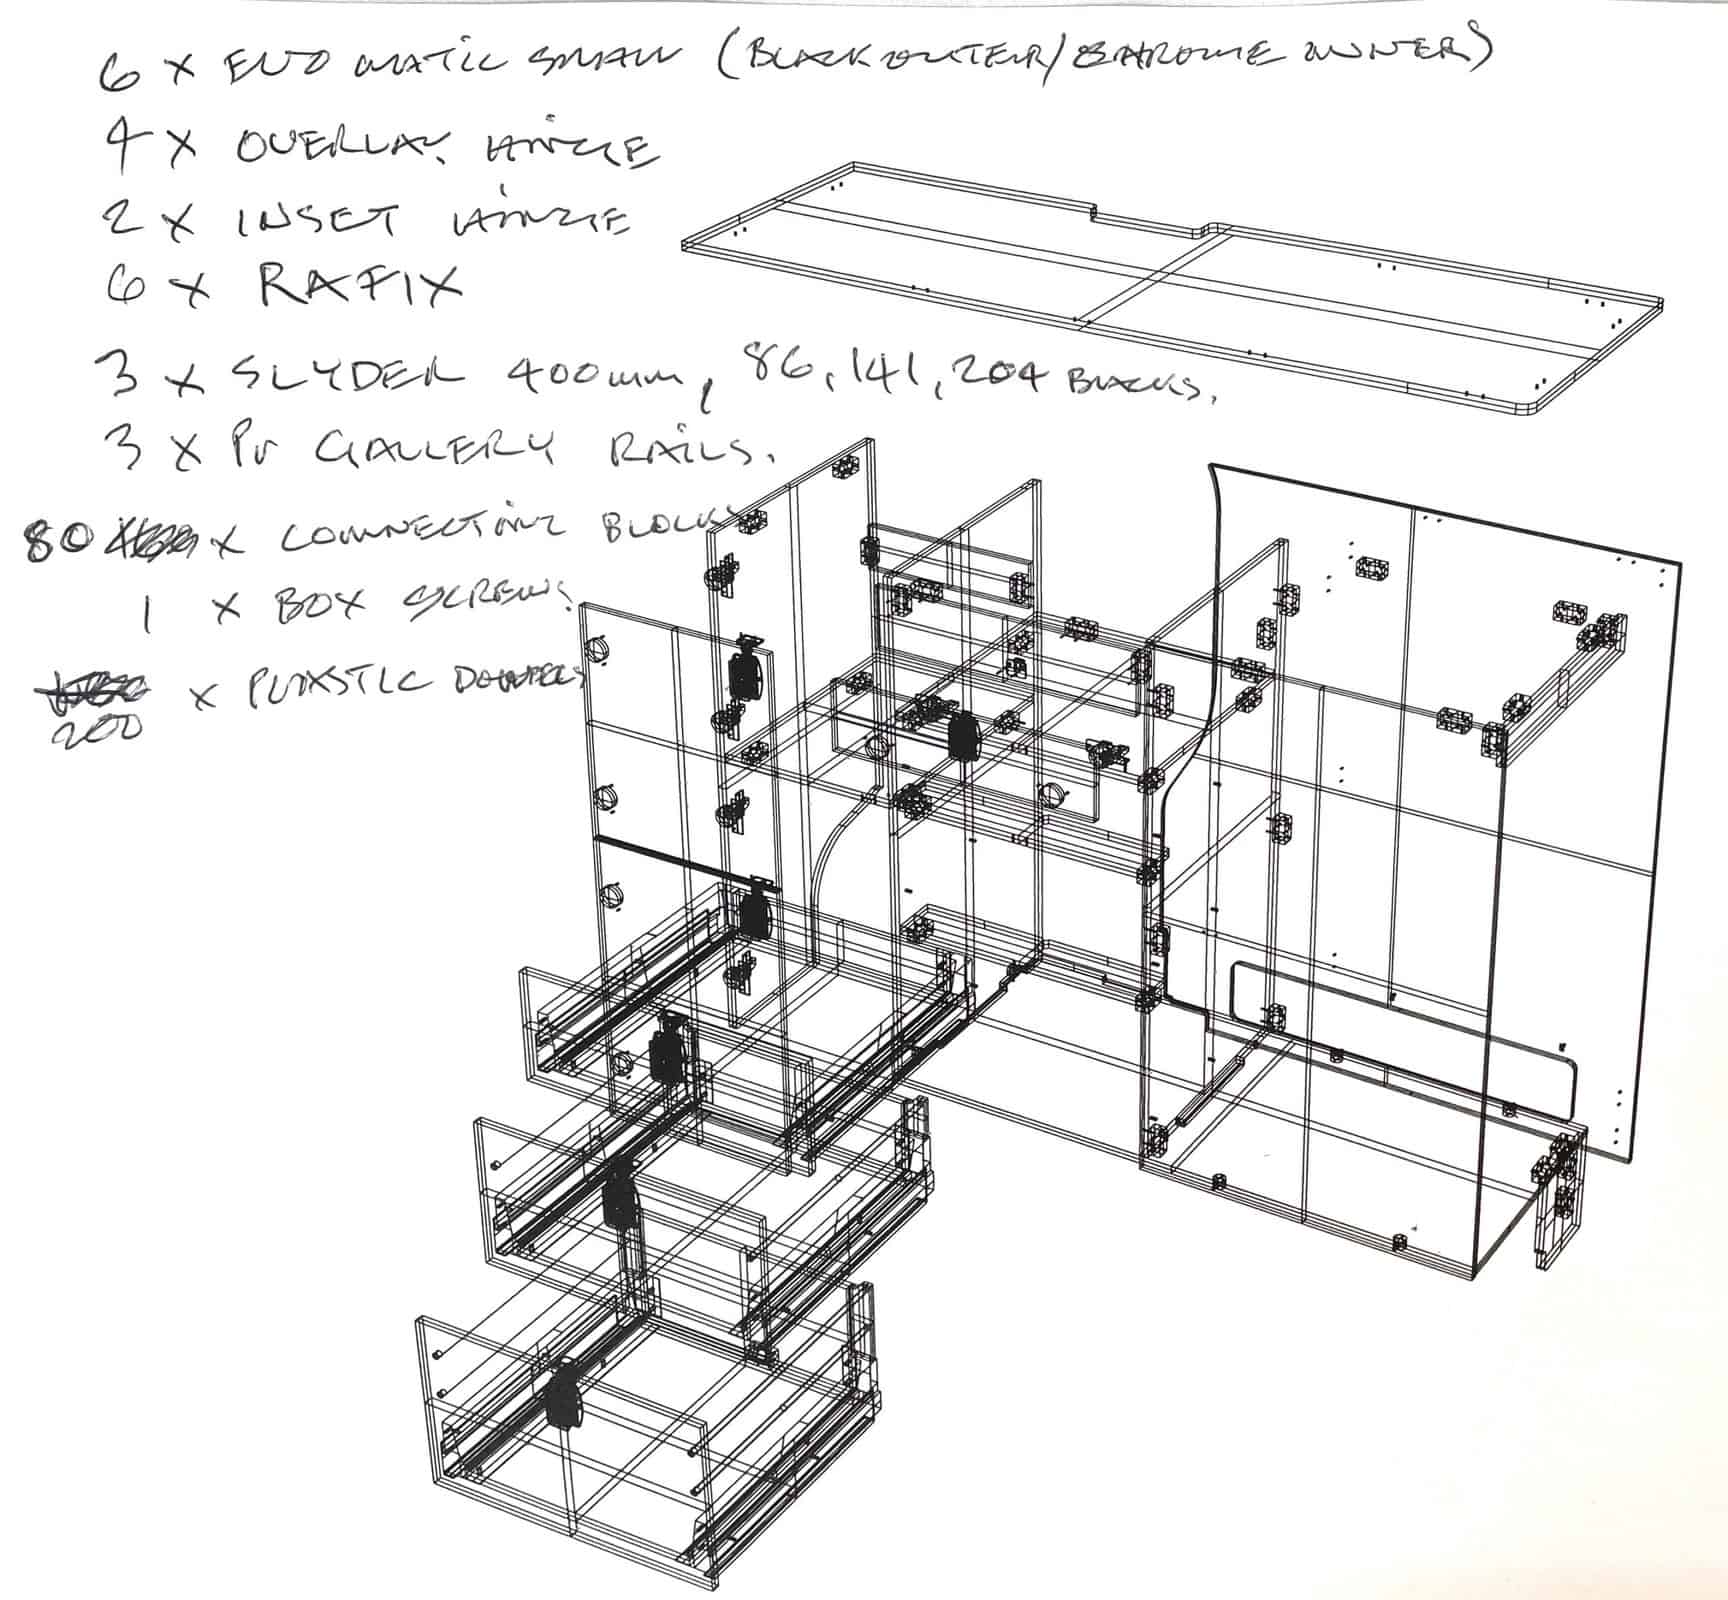 6 x EVO MATIC SMALL (BLACK OUTER/CHROME INNER)
4 x OVERLAY HINGE
2 x INSET HINGE
6 x RAFIX
3 x SLYDER 400mm, 86, 141, 204 BLACKS.
3 x Pr GALLERY RAILS.
80 x CONNECTING BLOCKS
1 x BOX SCREWS.
200 x PLASTIC DOWELS